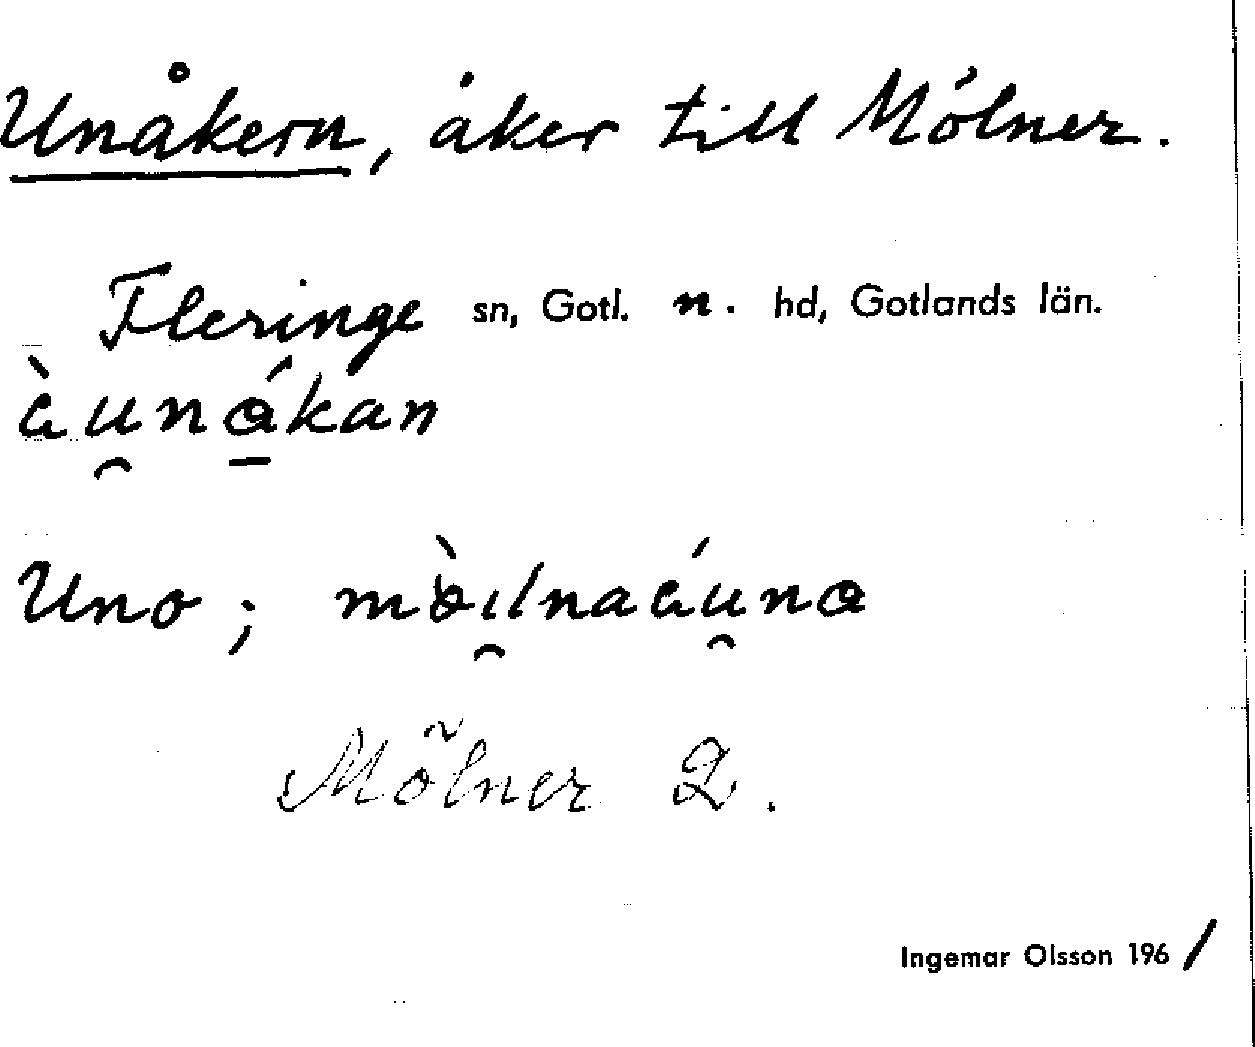 Unåkern, åker till Mölner.
Fleringe sn, Gotl. n. hd, Gotlands län.
àu̯ná̱kan
Uno; mòi̯lnaáu̯na
Mölner 2.
Ingemar Olsson 1961